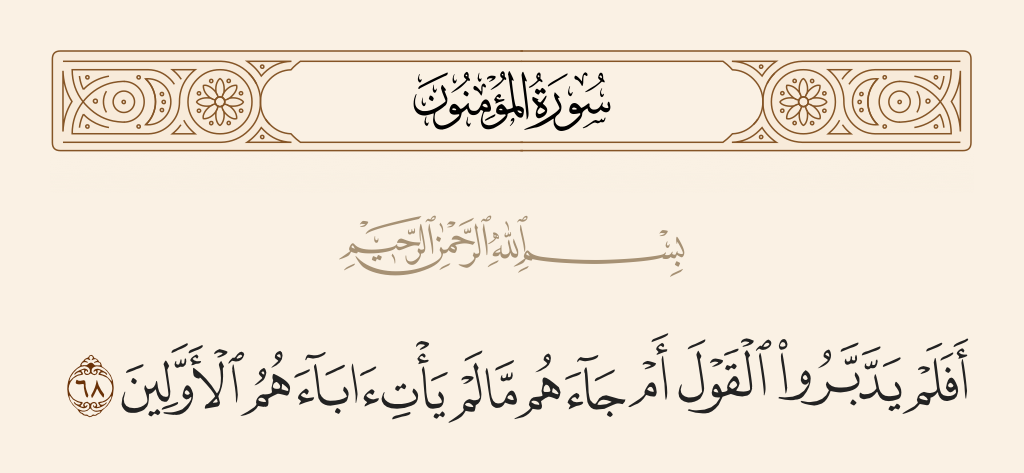 سُورَةُ الْمُؤْمِنُونَ
بِسْمِ ٱللَّهِ ٱلرَّحْمَٰنِ ٱلرَّحِيمِ
أَفَلَمْ يَدَّبَّرُوا۟ ٱلْقَوْلَ أَمْ جَآءَهُم مَّا لَمْ يَأْتِ ءَابَآءَهُمُ ٱلْأَوَّلِينَ ٦٨